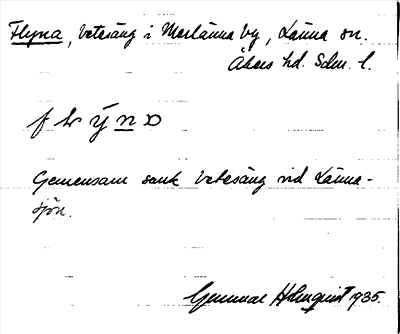 Flyna, betesäng i Merlänna by, Länna sn.
Åkers hd. Sdm. l.
Gemensam sank betesäng vid Länna-
sjön.
Gunnar Holmquist 1935.